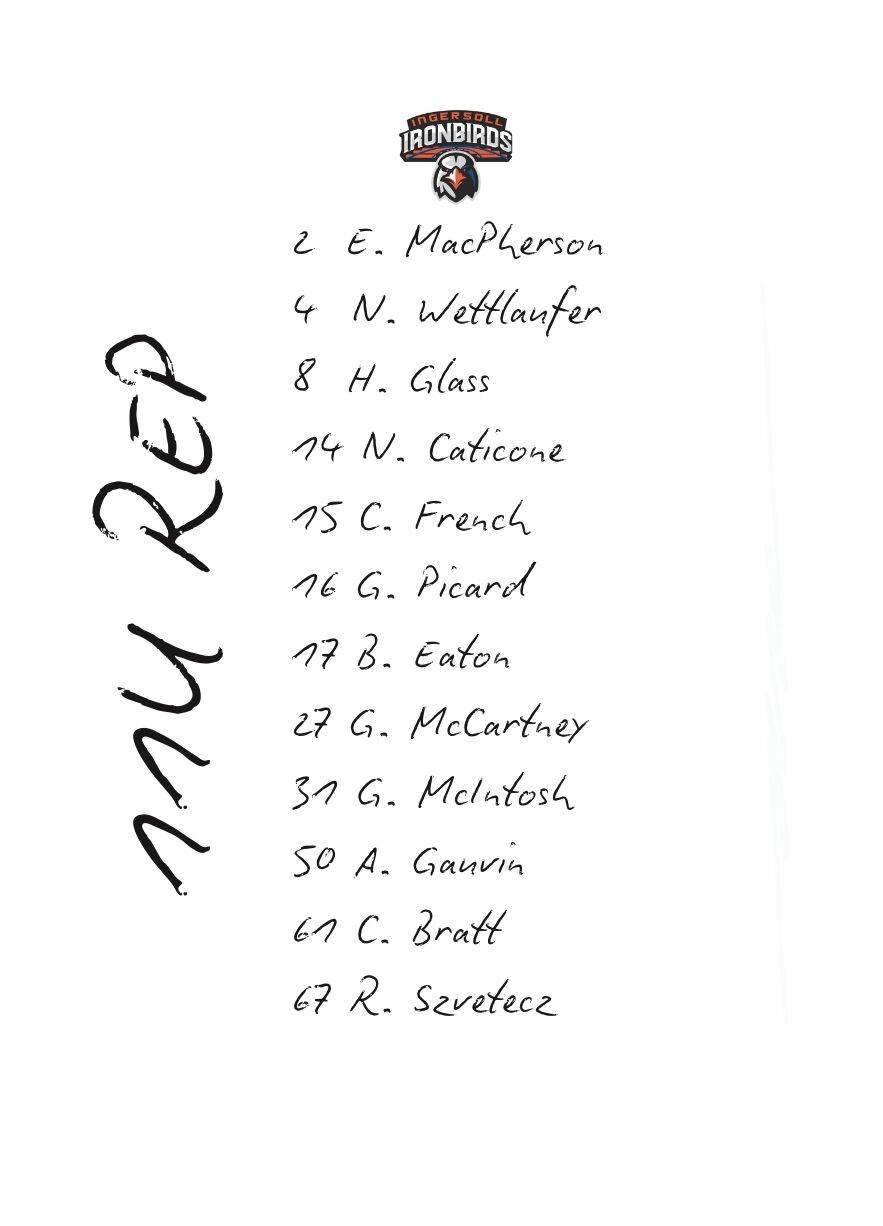 INGERSOLL
IRONBIRDS
11U REP
2 E. MacPherson
4 N. Wettlaufer
8 H. Glass
14 N. Caticone
15 C. French
16 G. Picard
17 B. Eaton
27 G. McCartney
31 G. McIntosh
50 A. Gauvin
61 C. Bratt
67 R. Szvetecz